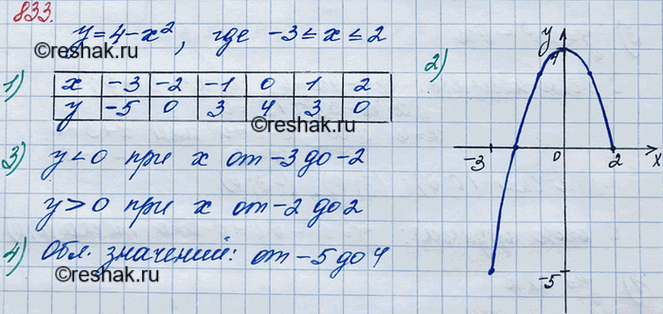 833.
y=4-x², где -3≤x≤2
1)
x -3 -2 -1 0 1 2
y -5 0 3 4 3 0
©reshak.ru
©reshak.ru
3) y<0 при x от -3 до -2
y>0 при x от -2 до 2
4) Обл. значений: от -5 до 4
©reshak.ru
2)
y
4
-3 0 2 x
-5